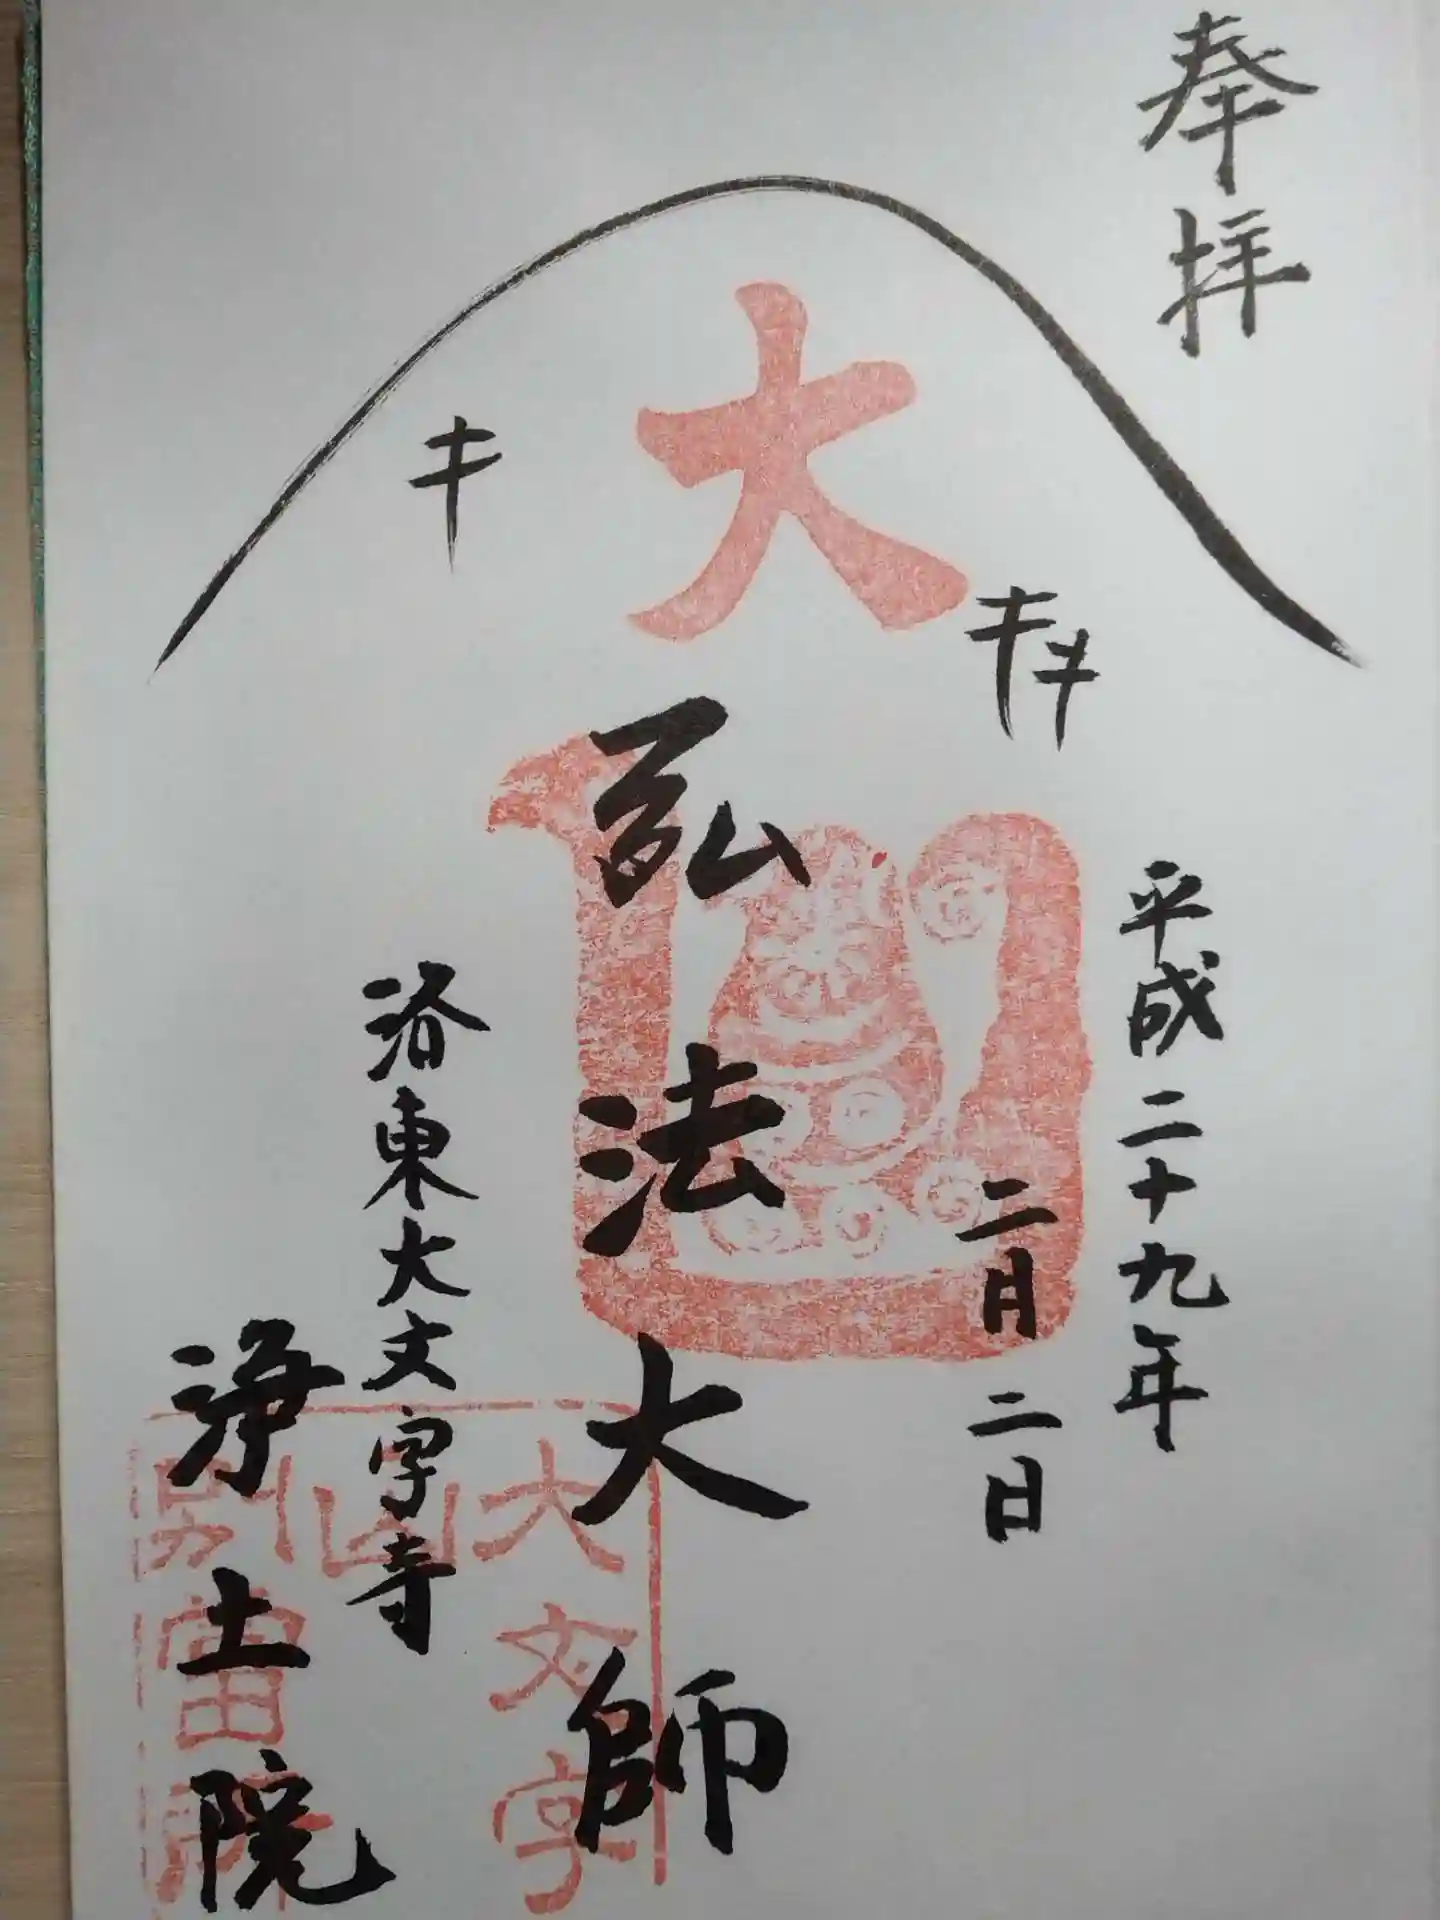 奉拝
平成二十九年
二月二日
大
弘法大師
洛東大文字寺
浄土院
大文字
山
別當